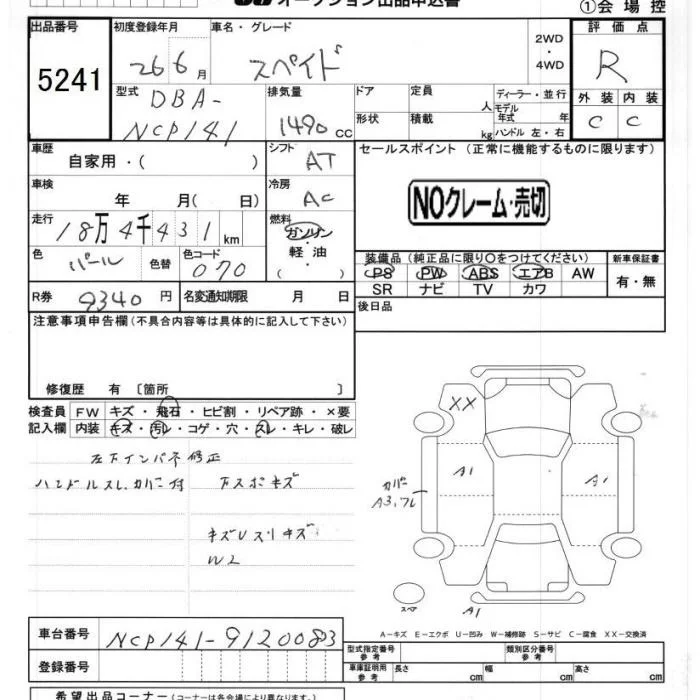 オークション出品申込書
①会場控
出品番号 初度登録年月 車名・グレード 評価点
5241 26 6月 スペイド 2WD・4WD R
外装 内装
C C
型式 排気量 ドア 定員 人 ディーラー・並行
DBA-
NCP141 1490 cc 形状 積載 kg モデル年式 年
ハンドル 左・右
車歴 シフト セールスポイント (正常に機能するものに限ります)
自家用・( ) AT
車検 冷房
年 月( 日) AC
NOクレーム・売切
走行 燃料
18万4千431km ガソリン・軽油 ( )
色 パール 色替 色コード 070
装備品(純正品に限り○をつけてください) 新車保証書
PS PW ABS エアB AW 有・無
SR ナビ TV カワ
R券 9340円 名変通知期限 月 日 後日品
注意事項申告欄(不具合内容等は具体的に記入して下さい)
修復歴 有 〔箇所 〕
検査員 FW キズ・飛石・ヒビ割・リペア跡・×要
記入欄 内装 キズ・汚レ・コゲ・穴・スレ・キレ・破レ
左下インパネ修正
ハンドルスレ、カバー付 下スポキズ
キズUスリキズ
W2
XX
A1
A1
カバー
A3,ワレ
スペア
A1
A-キズ E-エクボ U-凹み W-補修跡 S-サビ C-腐食 XX-交換済
車台番号 NCP141-9120083
型式指定番号 参考 類別区分番号 参考
登録番号 車庫証明用 参考 長さ cm 幅 cm 高さ cm
希望出品コーナー(コーナーは各会場により異なります)